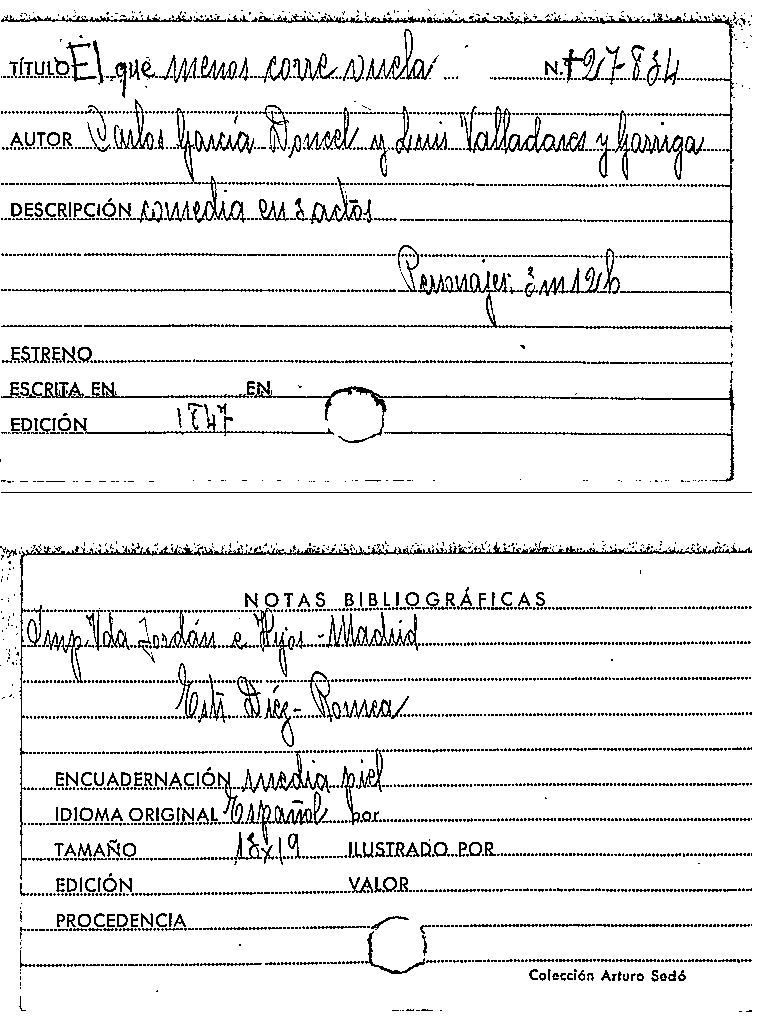 TÍTULO El que menos corre vuela N.º 27-834
AUTOR Carlos García Doncel y Luis Valladares y Garriga
DESCRIPCIÓN comedia en 3 actos
Personajes: 3m 12h
ESTRENO
ESCRITA EN EN
EDICIÓN 1847
NOTAS BIBLIOGRÁFICAS
Imp Vda Jordán e Hijos - Madrid
Est Díez - Romea
ENCUADERNACIÓN media piel
IDIOMA ORIGINAL Español por
TAMAÑO 13x19 ILUSTRADO POR
EDICIÓN VALOR
PROCEDENCIA
Colección Arturo Sedó